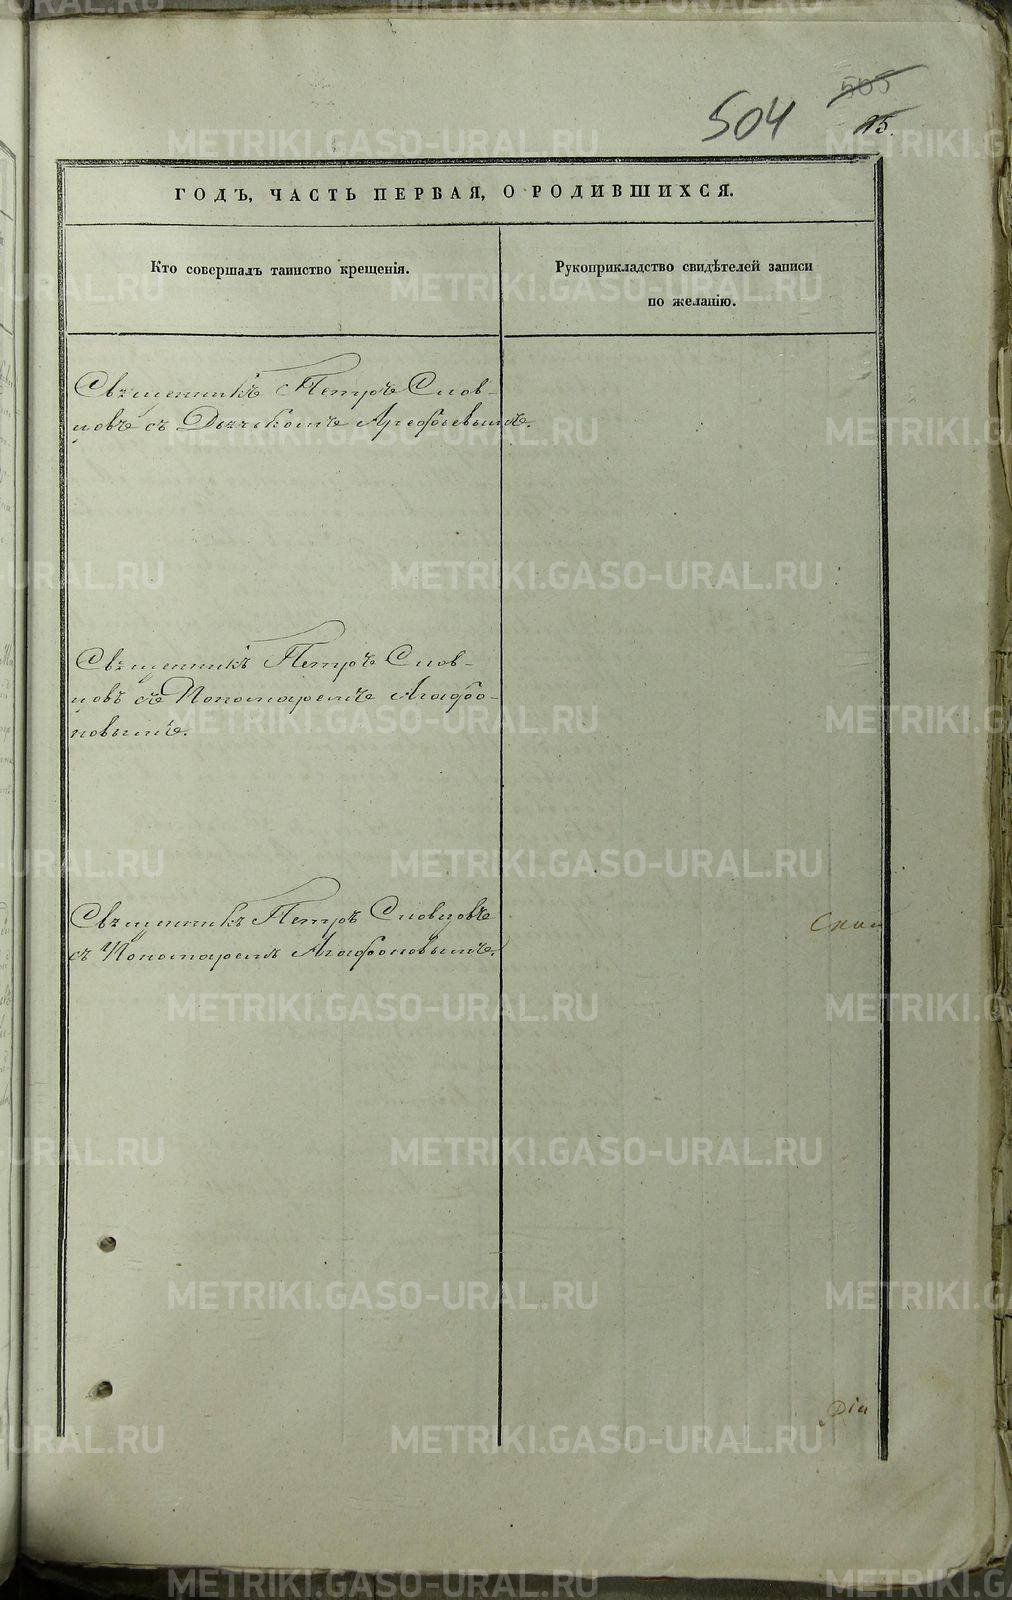 504 505
15.
ГОДЪ, ЧАСТЬ ПЕРВАЯ, О РОДИВШИХСЯ.
Кто совершалъ таинство крещенія.
Рукоприкладство свидѣтелей записи
по желанію.
Священникъ Петръ Слов-
цовъ съ Дьячькомъ Арефьевымъ.
Священникъ Петръ Слов-
цовъ съ Пономаремъ Агафо-
новымъ.
Священникъ Петръ Словцовъ
съ Пономаремъ Агафоновымъ.
METRIKI.GASO-URAL.RU